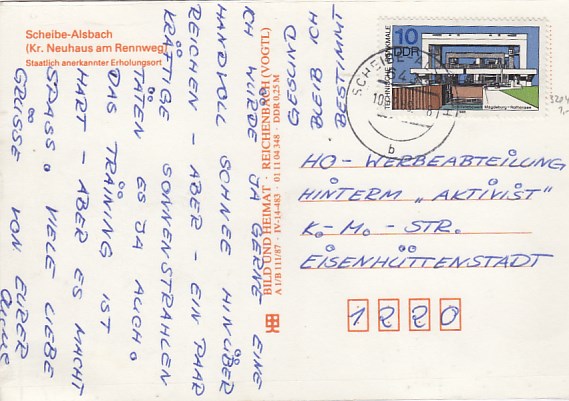 Scheibe-Alsbach
(Kr. Neuhaus am Rennweg)
Staatlich anerkannter Erholungsort
ICH WÜRDE JA GERNE EINE
HANDVOLL SCHNEE HINÜBER
REICHEN - ABER - EIN PAAR
KRÄFTIGE SONNENSTRAHLEN
TÄTEN ES JA AUCH.
DAS TRÄINING IST
HART - ABER ES MACHT
SPASS. VIELE LIEBE
GRÜSSE VON EURER
GESUND
BLEIB ICH
BESTIMMT
BILD UND HEIMAT · REICHENBACH (VOGTL)
A 1/B 111/87 · IV-14-483 · 01 11 04 348 · DDR 0,25 M
10
DDR
TECHNISCHE DENKMALE
Magdeburg-Rothensee
b
HO-WERBEABTEILUNG
HINTERM „AKTIVIST"
K.-M.-STR.
EISENHÜTTENSTADT
1220